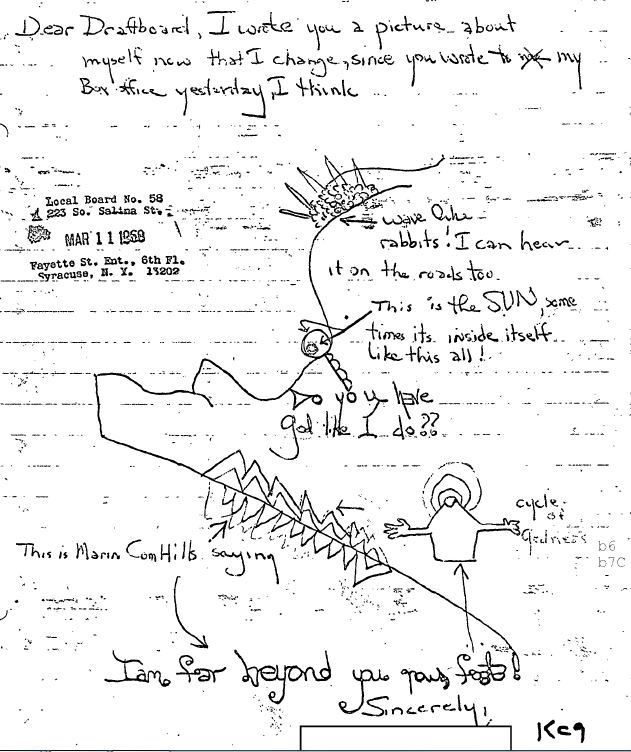 Dear Draftboard, I wrote you a picture about
myself now that I change, since you wrote to my
Box office yesterday, I think
Local Board No. 58
223 So. Salina St.
MAR 11 1968
Fayette St. Ent., 6th Fl.
Syracuse, N. Y. 13202
wave like
rabbits! I can hear
it on the roads too.
This is the SUN, some
times its inside itself
like this all!
Do you have
god like I do??
cycle
of
godness
b6
b7C
This is Marin Com Hills saying
I am far beyond you now,
Sincerely,